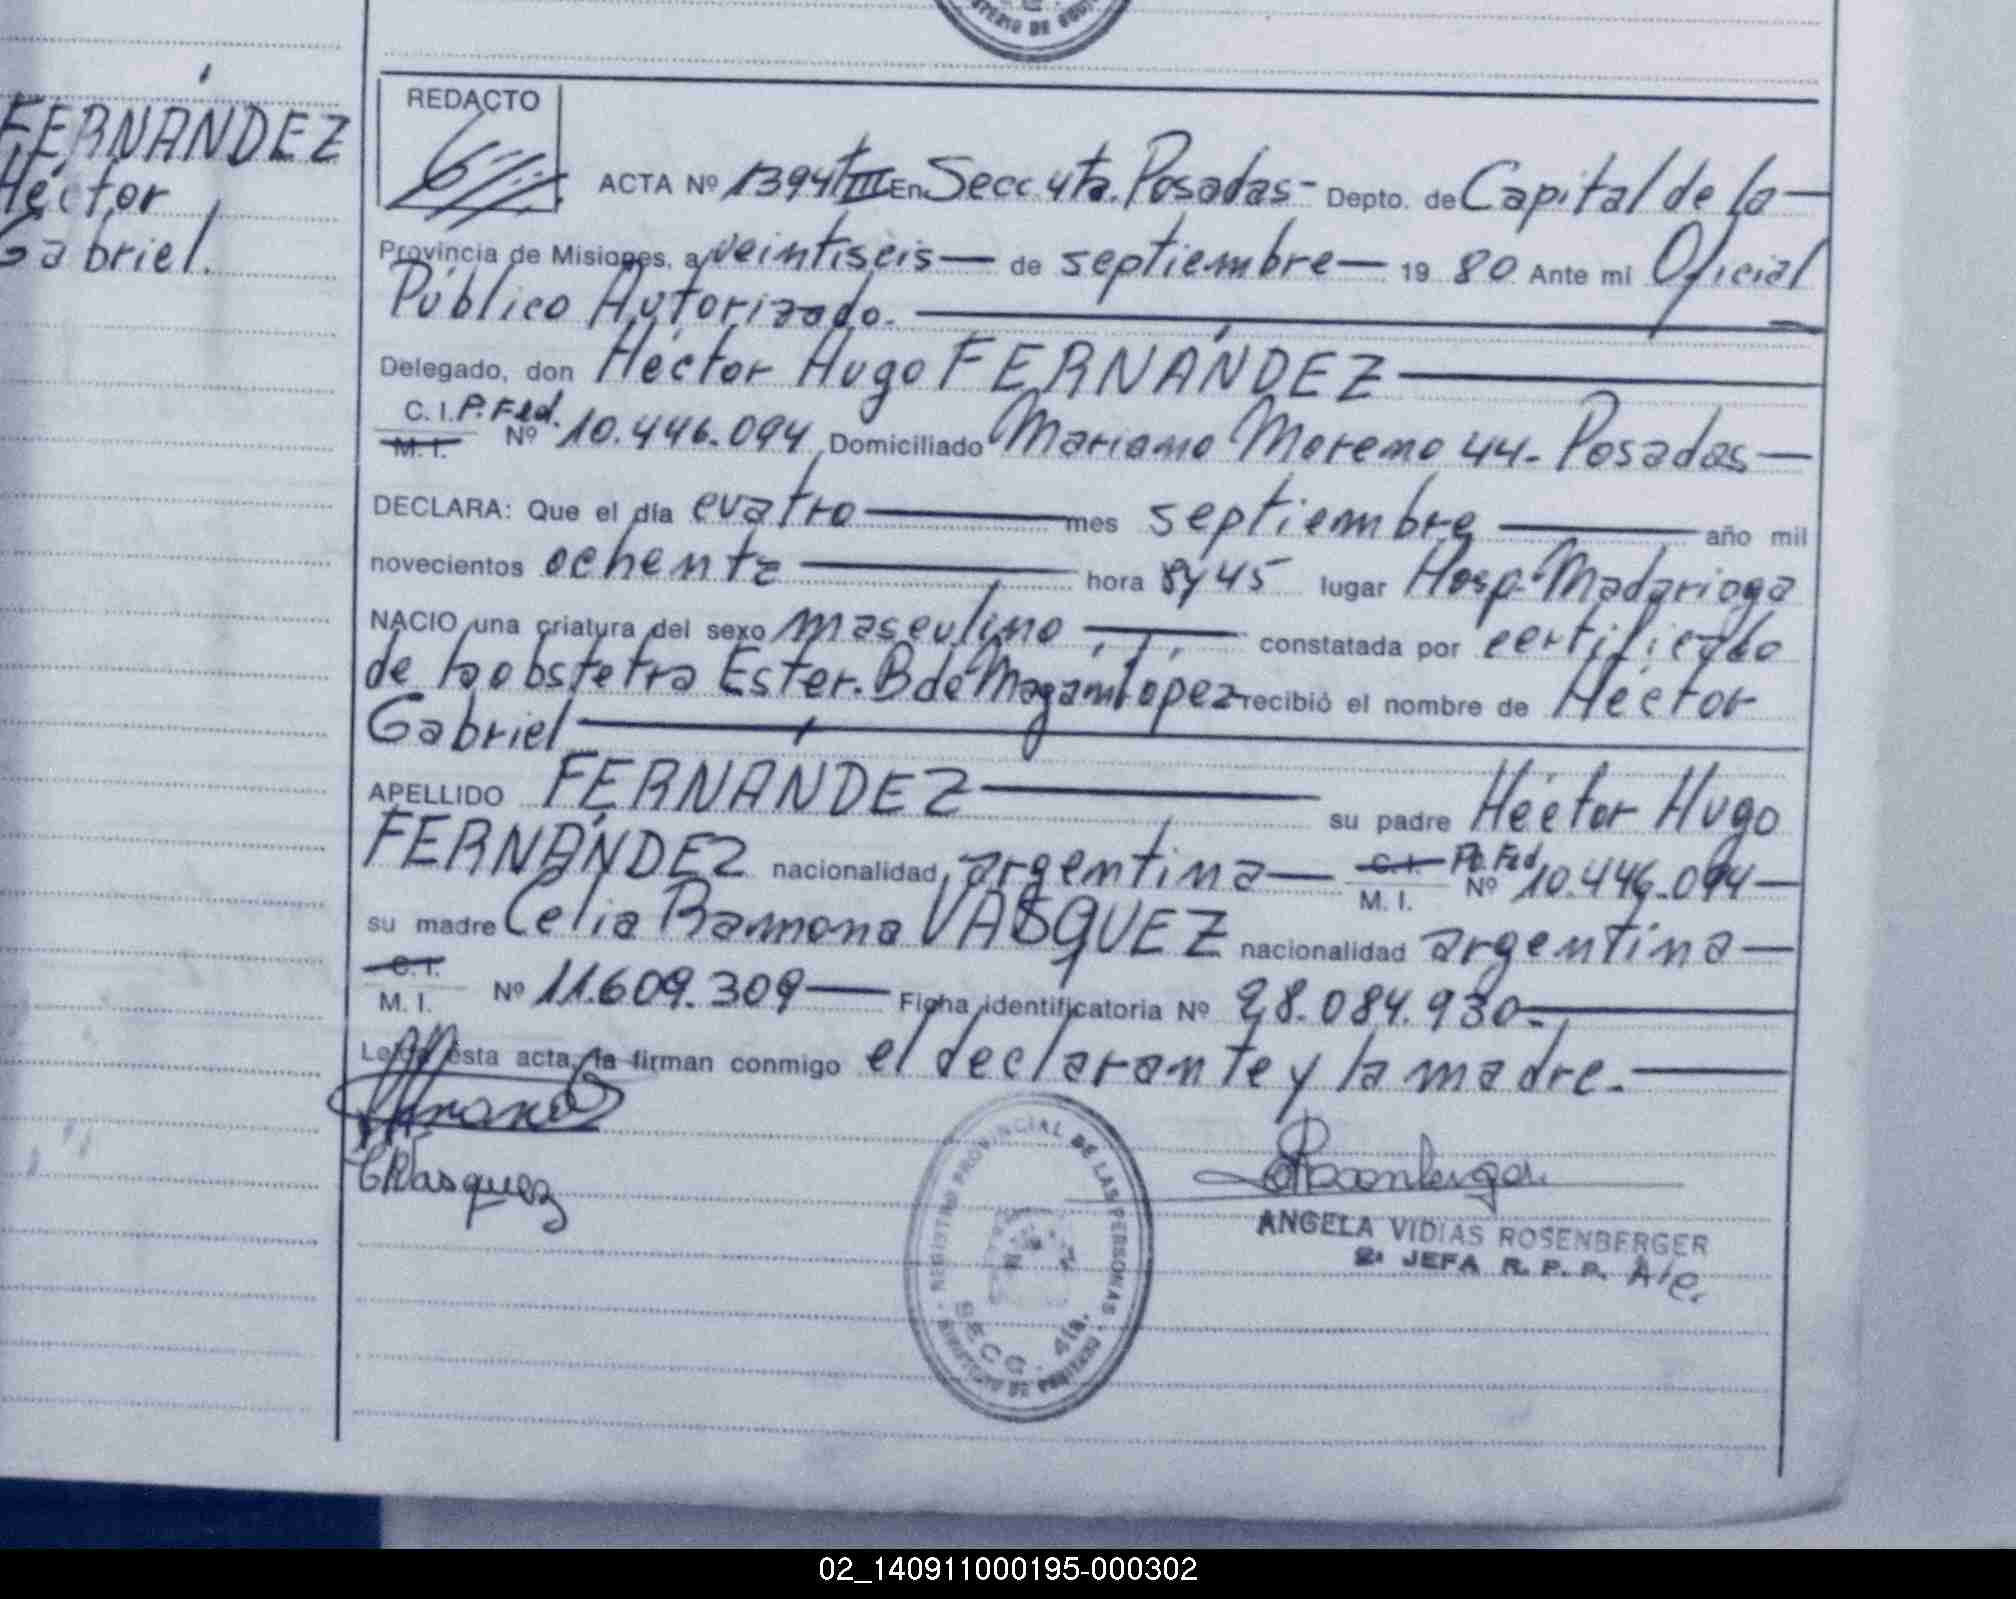 MINISTERIO DE GOBIERNO
FERNÁNDEZ
Héctor
Gabriel.
REDACTO
ACTA Nº 1394 T III En Secc. 4ta. Posadas- Depto. de Capital de la
Provincia de Misiones, a veintiseis de septiembre 19 80 Ante mi Oficial
Público Autorizado.
Delegado, don Héctor Hugo FERNÁNDEZ
C. I. P. Fed.
M. I. Nº 10.446.094 Domiciliado Mariano Moreno 44- Posadas
DECLARA: Que el día cuatro mes septiembre año mil
novecientos ochenta hora 8y45 lugar Hosp. Madariaga
NACIO una criatura del sexo masculino constatada por certificado
de la obstetra Ester. B de López recibió el nombre de Héctor
Gabriel
APELLIDO FERNÁNDEZ su padre Héctor Hugo
FERNÁNDEZ nacionalidad argentina C. I. Fed
M. I. Nº 10.446.094
su madre Celia Ramona VASQUEZ nacionalidad argentina
C. I.
M. I. Nº 11.609.309 Ficha identificatoria Nº 28.084.930.
Leída ésta acta, la firman conmigo el declarante y la madre.
CRVasquez
REGISTRO PROVINCIAL DE LAS PERSONAS
SECC. 4ta.
MINISTERIO DE GOBIERNO
Rosenberger
ANGELA VIDIAS ROSENBERGER
2ª JEFA R. P. P. A/C.
02_140911000195-000302